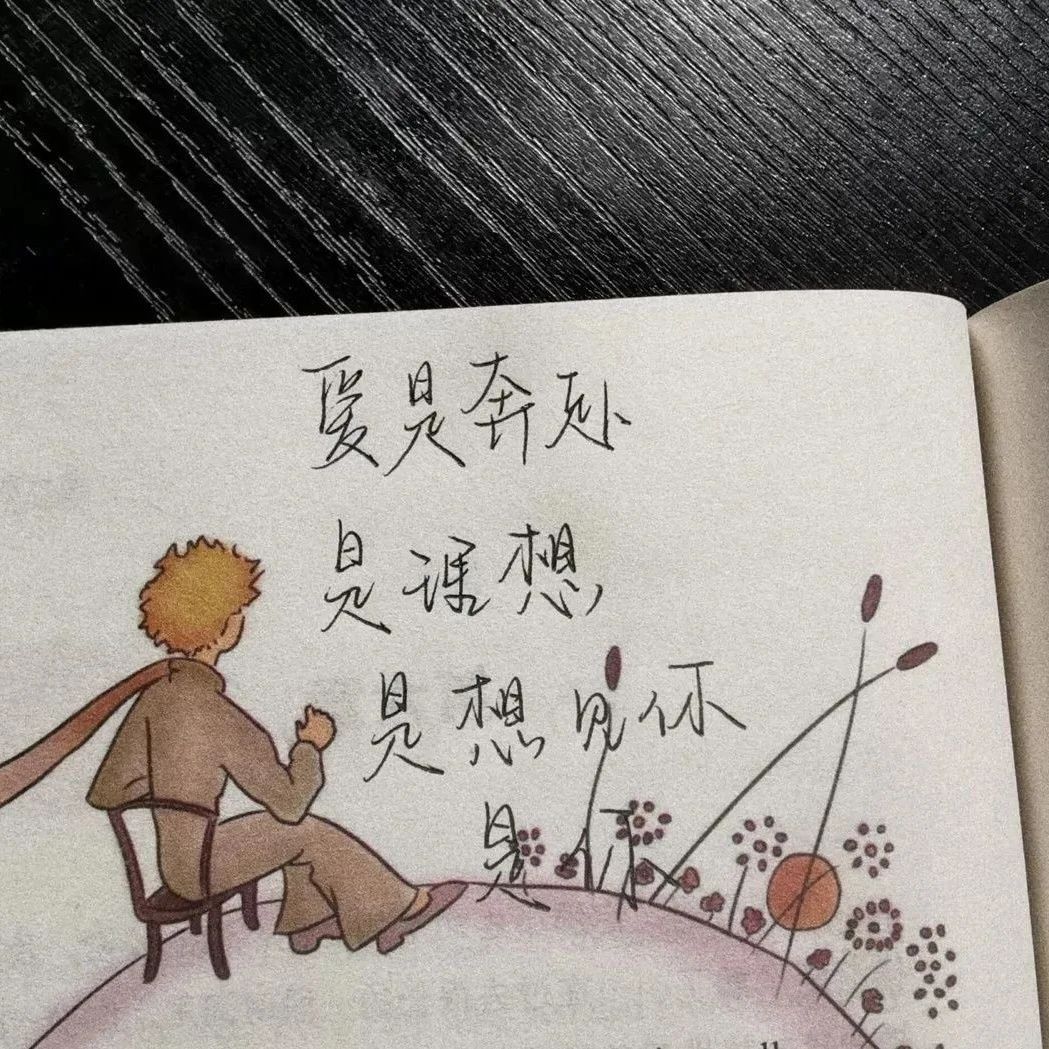 爱是奔赴
是谨想
是想见你
是你